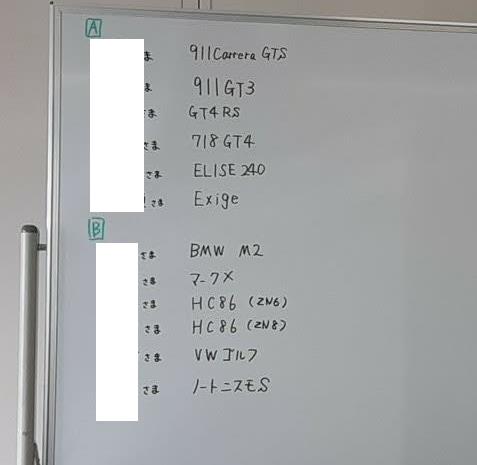 A
ま 911 Carrera GTS
ま 911 GT3
さま GT4 RS
さま 718 GT4
さま ELISE 240
さま Exige
B
さま BMW M2
さま マークX
さま HC86 (ZN6)
さま HC86 (ZN8)
さま VW ゴルフ
さま ノートニスモS